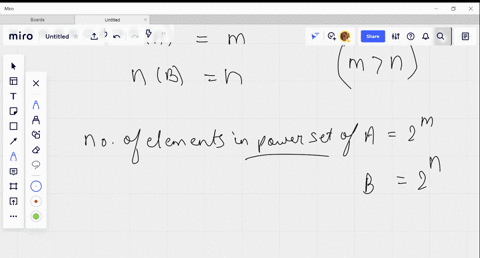 Miro
Boards
Untitled
miro
Untitled
Share
= m
(m > n)
n (B) = n
no. of elements in power set of A = 2^m
B = 2^n